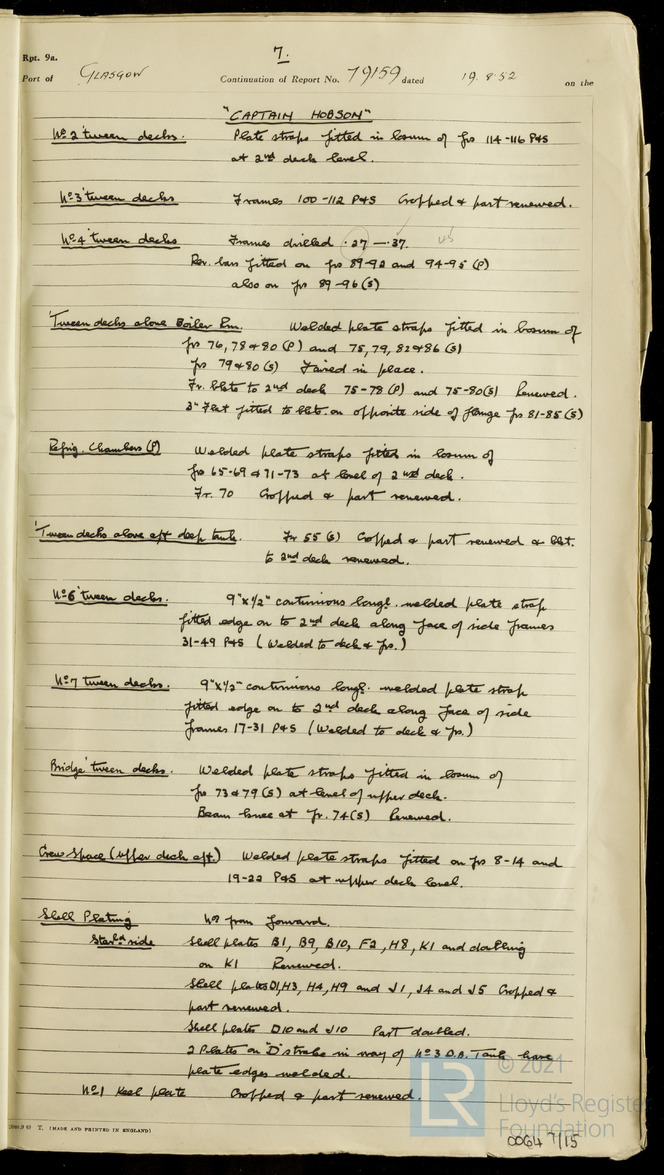 7.
Rpt. 9a.
Port of GLASGOW Continuation of Report No. 79159 dated 19.8.52 on the
"CAPTAIN HOBSON"
No 2 'tween decks. Plate straps fitted in bosum of frs 114-116 P&S
at 2nd deck level.
No 3 'tween decks Frames 100-112 P&S Cropped & part renewed.
No 4 'tween decks Frames drilled .27 — .37.
Rev. bars fitted on frs 89-92 and 94-95 (P)
also on frs 89-96 (S)
'Tween decks above Boiler Rm. Welded plate straps fitted in bosum of
frs 76, 78 & 80 (P) and 75, 79, 82 & 86 (S)
frs 79 & 80 (S) Faired in place.
Fr. bkts to 2nd deck 75-78 (P) and 75-80 (S) Renewed.
3" Flat fitted to bkts. on opposite side of flange frs 81-85 (S)
Refrig. Chambers (P) Welded plate straps fitted in bosum of
frs 65-69 & 71-73 at level of 2nd deck.
Fr. 70 Cropped & part renewed.
'Tween decks above aft deep tank. Fr 55 (S) Copped & part renewed & bkt.
to 2nd deck renewed.
No 6 'tween decks. 9"x1/2" continuous longl. welded plate strap
fitted edge on to 2nd deck along face of side frames
31-49 P&S (Welded to deck & frs.)
No 7 'tween decks. 9"x1/2" continuous longl. welded plate strap
fitted edge on to 2nd deck along face of side
frames 17-31 P&S (Welded to deck & frs.)
Bridge 'tween decks. Welded plate straps fitted in bosum of
frs 73 & 79 (S) at level of upper deck.
Beam knee at fr. 74 (S) Renewed.
Crew Space (upper deck aft) Welded plate straps fitted on frs 8-14 and
19-22 P&S at upper deck level.
Shell Plating No from forward.
Starbd side Shell plates B1, B9, B10, F2, H8, K1 and doubling
on K1 Renewed.
Shell plates D1, H3, H4, H9 and J1, J4 and J5 Cropped &
part renewed.
Shell plates D10 and J10 Part doubled.
2 Plates on "D" strake in way of No 3 D.B. Tank have
plate edges welded.
No 1 Keel plate Cropped & part renewed.
T. (MADE AND PRINTED IN ENGLAND)
© 2021
LR
Lloyd's Register
Foundation
0064 7/15